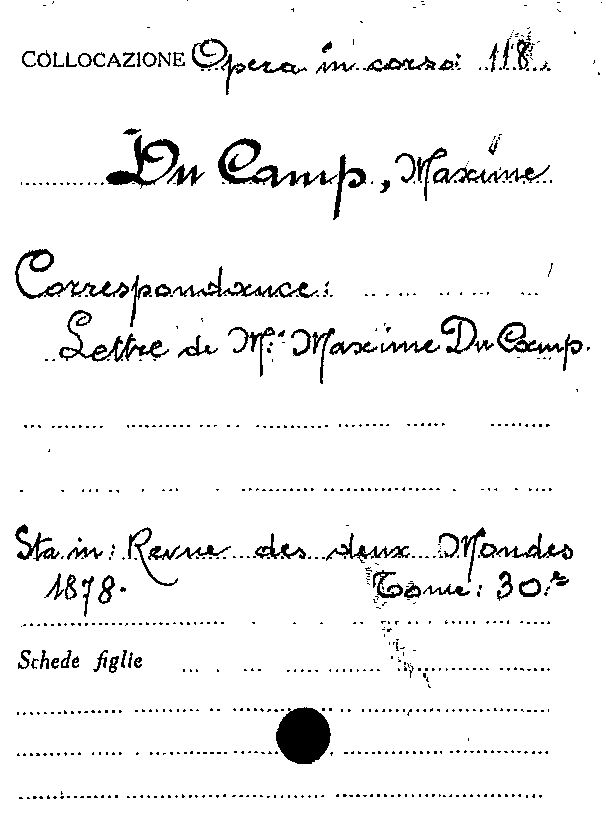 COLLOCAZIONE Opera in corso: 118.
Du Camp, Maxime
Correspondance:
Lettre de M.r Maxime Du Camp.
Sta in: Revue des deux Mondes
1878. Tome: 30.e
Schede figlie